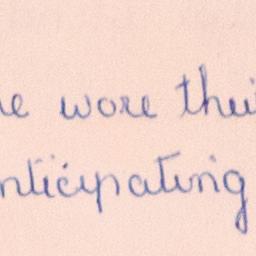 ue wore thei
nticipating